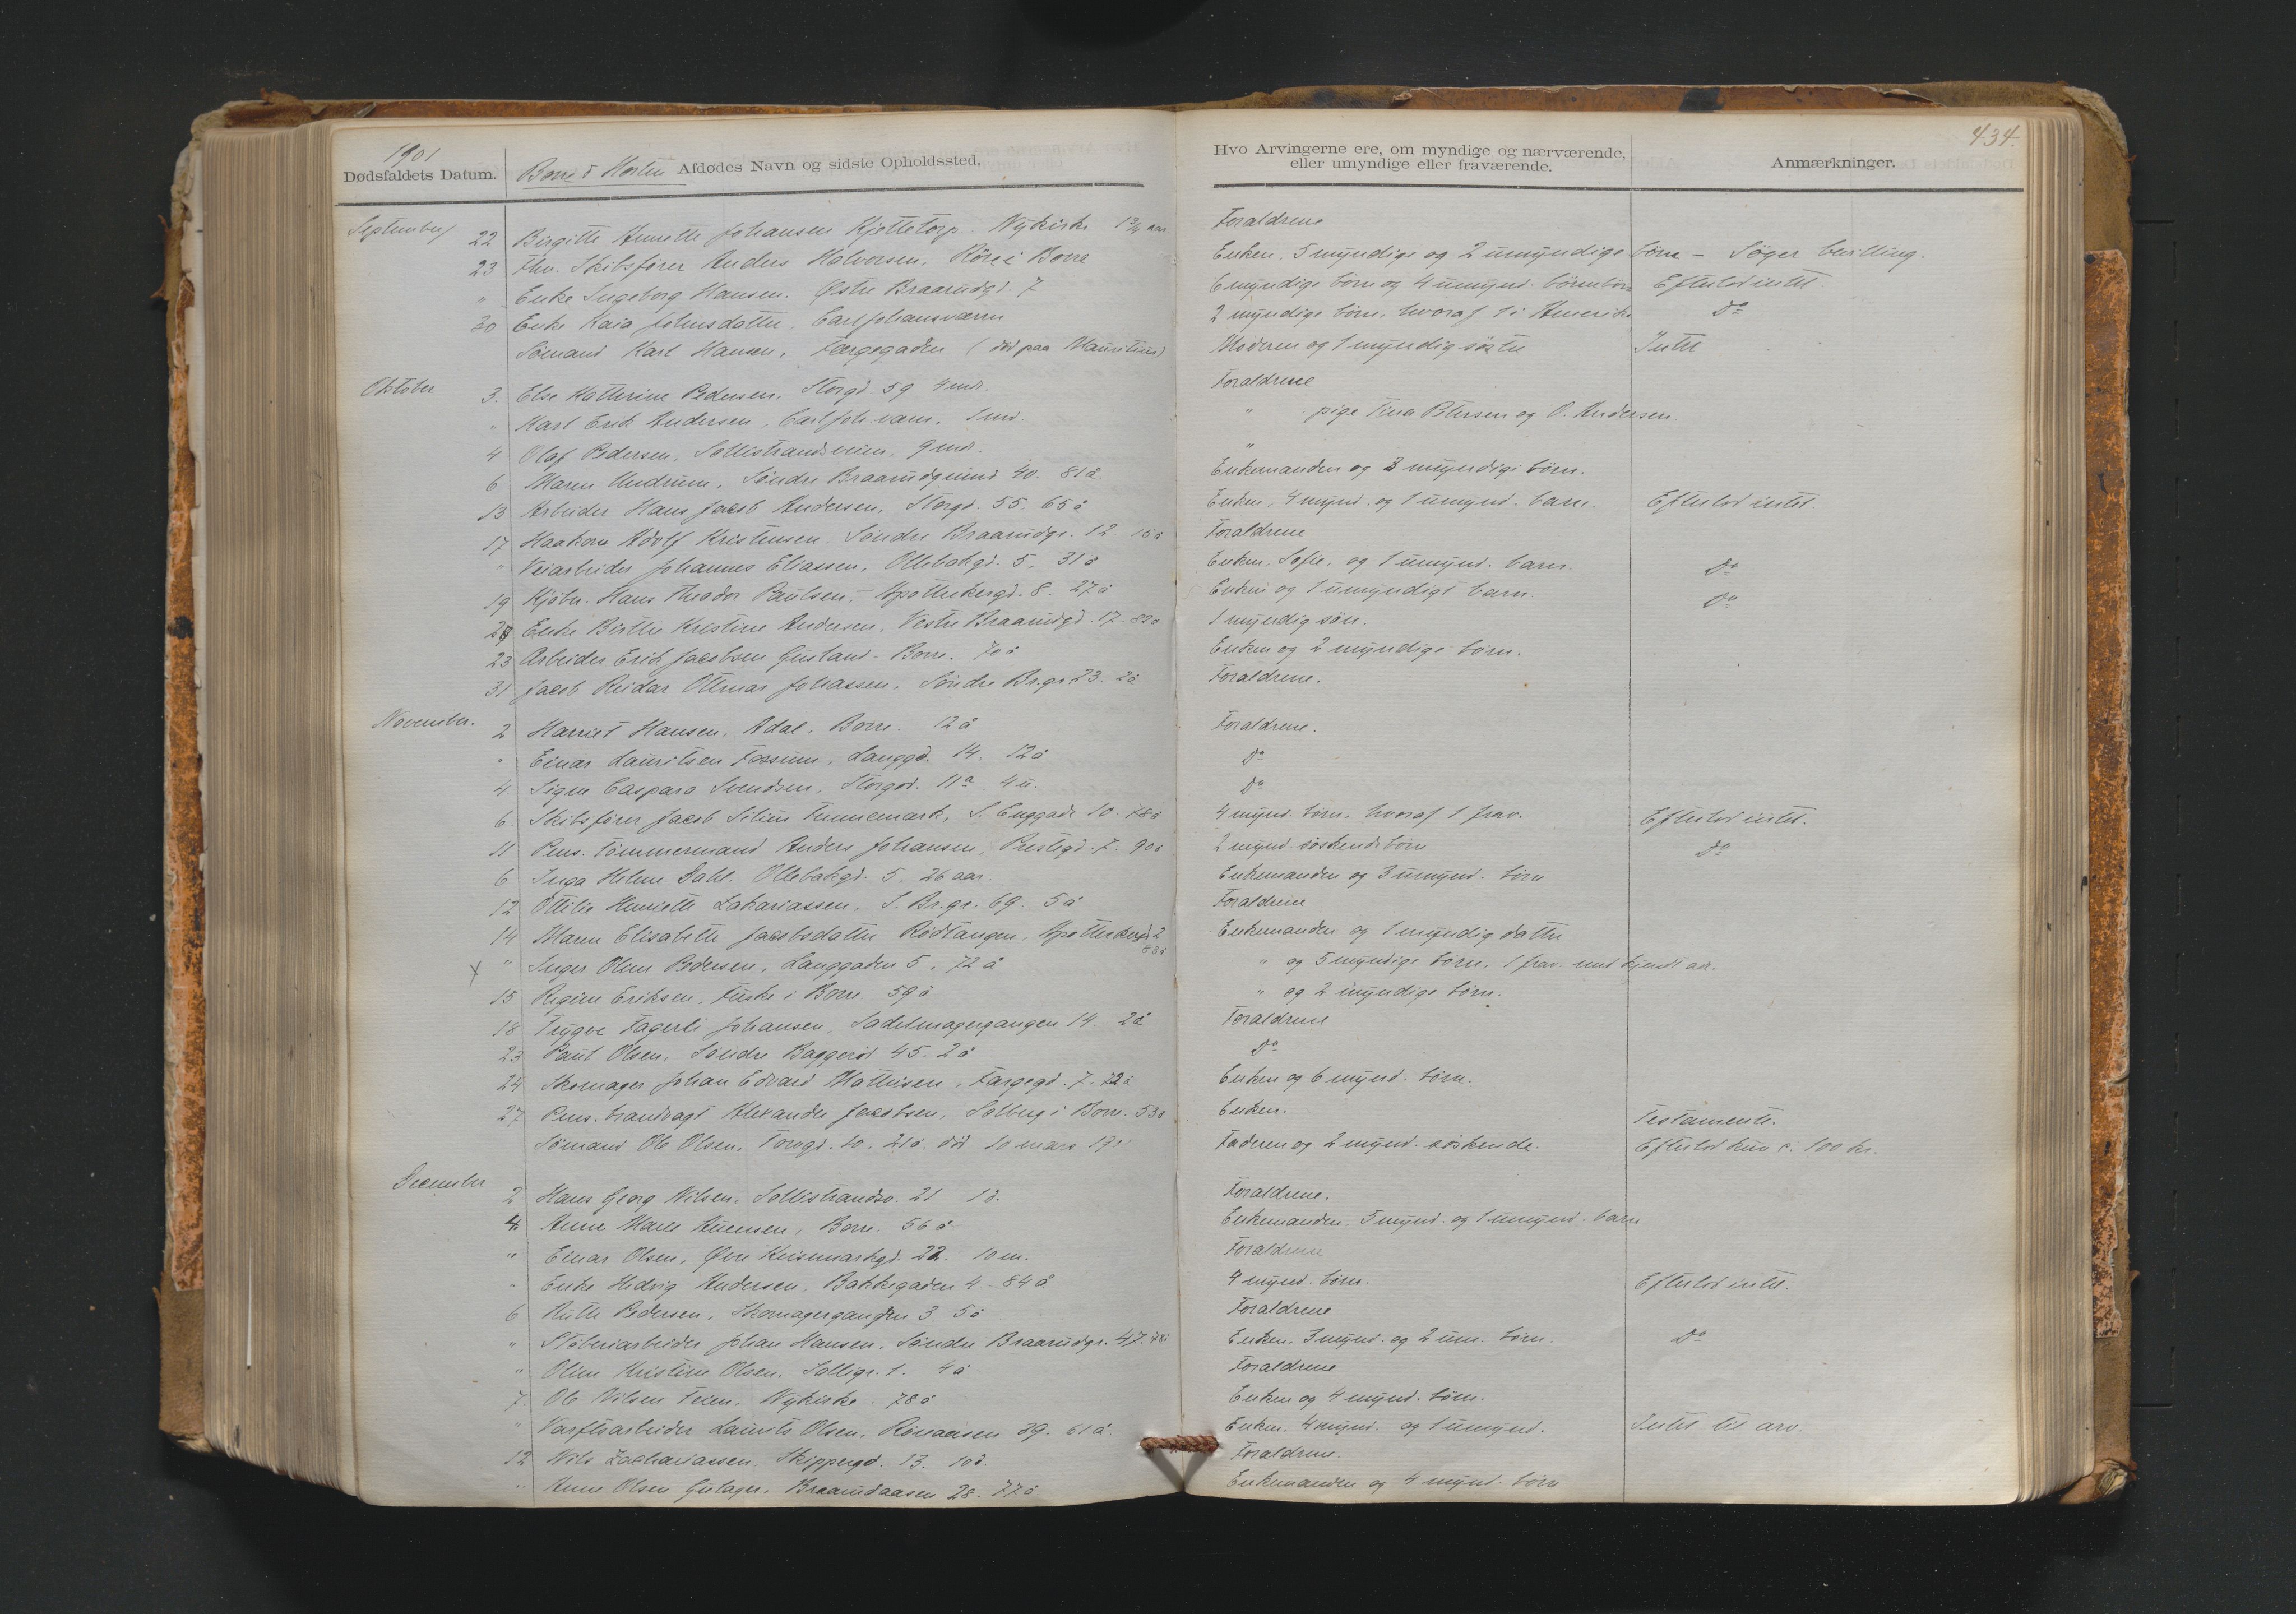 1901
434.
Dødsfaldets Datum. Borre & Horten Afdødes Navn og sidste Opholdssted. Hvo Arvingerne ere, om myndige og nærværende, eller umyndige eller fraværende. Anmærkninger.
September 22 Birgitte Annette Johansen Kjettetorp. Nykirke 1 3/4 aar. Forældrene
23 Fhv. Skibsfører Anders Halvorsen, Röre i Borre Enken, 5 myndige og 2 umyndige börn - Söger bevilling.
" Enke Ingeborg Hansen. Østre Braarudgd. 7 6 myndige börn og 4 umynd. börnebörn Efterlod intet.
30 Enke Kaia Johnsdatter, Carljohansværn 2 myndige börn, hvoraf 1 i Amerika Do
Sömand Karl Hansen, Færgegaden (död paa Mauritius) Moderen og 1 myndig söster Intet
Oktober 3. Else Kathrine Pedersen, Storgd. 59 4 md. Forældrene
" Karl Erik Andersen, Carl Joh.værn. " pige Tina Petersen og O. Andersen.
4 Olaf Pedersen, Sollistrandsveien. 9 md. "
6 Maren Undrum, Søndre Braarudgrund 40. 81 å Enkemanden og 3 myndige börn.
13 Arbeider Hans Jacob Andersen, Storgd. 55. 65 å Enken, 4 mynd. og 1 umynd. barn. Efterlod intet.
17 Haakon Adolf Kristensen. Söndre Braarudgr. 12 15 å Forældrene
" Veiarbeider Johannes Eliassen, Ollebakgd. 5, 31 å Enken, Sofie, og 1 umynd. barn. Do
19 Kjöbm. Hans Theodor Paulsen, Apothekergd. 8. 27 å Enken og 1 umyndigt barn. Do
Enke Birthe Kristine Andersen, Vestre Braarudgd. 17. 82 å 1 myndig sön.
23 Arbeider Erik Jacobsen - Borre. 70 å Enken og 2 myndige börn.
31 Jacob Reidar Ottmar Johassen, Söndre Br.gr. 23. 2 å Forældrene.
November. 2 Harriet Hansen, Adal, Borre. 12 å Forældrene.
" Einar Lauritsen Fossum, Langgd. 14. 12 å Do
4. Signe Caspara Svendsen, Storgd. 11a 4 u. Do
6. Skibsförer Jacob Silius, S. Enggade 10. 78 å 4 mynd. börn, hvoraf 1 frav. Efterlod intet.
11 Pens. tömmermand Anders Johansen, Prestegd. 7. 90 å 2 mynd. söskendebörn Do
6 Inga Helene Dahl. Ollebakgd. 5. 26 aar. Enkemanden og 3 umynd. börn
12 Ottilie Henriette Zakariassen, S. Br.gr. 69. 5 å Forældrene
14 Maren Elisabeth Jacobsdatter Rödtangen, Apothekergd. 2 83 å Enkemanden og 1 myndig datter
X " Inger Oline Pedersen, Langgaden 5, 72 å " og 5 myndige börn, 1 frav. med kjendt adr.
15 Regine Eriksen, i Borre. 59 å " og 2 myndige börn.
18 Trygve Fagerli Johansen, Sadelmagergangen 14. 2 å Forældrene
23 Paul Olsen, Söndre Baggeröd 45. 2 å Do
24 Skomager Johan Edvard Mathisen, Færgegd. 7. 72 å Enken og 6 mynd. börn.
27 Pens. brandvagt Alexander Jacobsen, Solberg i Borre. 53 å Enken. Testamente.
Sömand Ole Olsen, Torvgd. 10. 21 å. död 10 mars 1901 Faderen og 2 mynd. söskende. Efterlod kun c. 100 kr.
December 2 Hans Georg Nilsen, Sollistrandsv. 21 1 å. Forældrene.
4. Anne Marie, Borre. 56 å Enkemanden, 5 mynd. og 1 umynd. barn
" Einar Olsen, Øvre Keisemarkgd. 22. 10 m. Forældrene
" Enke Hedvig Andersen, Bakkegaden 4 - 84 å 4 mynd. börn. Efterlod intet.
6 Ruth Pedersen, Skomagergangen 3. 5 å Forældrene
" Støberiarbeider Johan Hansen, Søndre Braarudgr. 47. Enken, 3 mynd. og 2 um. börn. Do
" Oline Kristine Olsen, Solligr. 1. 4 å Forældrene
7. Ole Nilsen Teien, Nykirke. 78 å Enken og 4 mynd. börn.
" Værftsarbeider Laurits Olsen, 39. 61 å. Enken, 4 mynd. og 1 umynd. Intet til arv.
12 Nils Zachariassen, Skippergd. 13. 10 å. Forældrene.
" Anne Olsen, Braarudaasen 28. 77 å Enkemanden og 4 mynd. börn